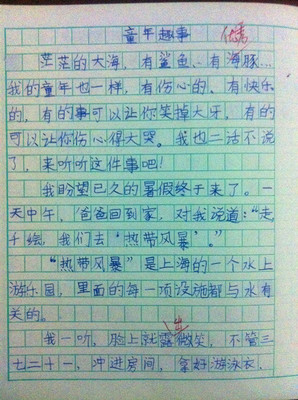 童年趣事
茫茫的大海，有鲨鱼、有海豚…
我的童年也一样，有伤心的、有快乐
的，有的事可以让你笑掉大牙，有的
可以让你伤心得大哭。我也二话不说
了，来听听这件事吧！
我盼望已久的暑假终于来了。一
天中午，爸爸回到家，对我说道：“走
千绘，我们去‘热带风暴’。”
“热带风暴”是上海的一个水上
游乐园，里面的每一项设施都与水有
关的。
我一听，脸上就露微笑，不管三
七二十一，冲进房间，拿好游泳衣，